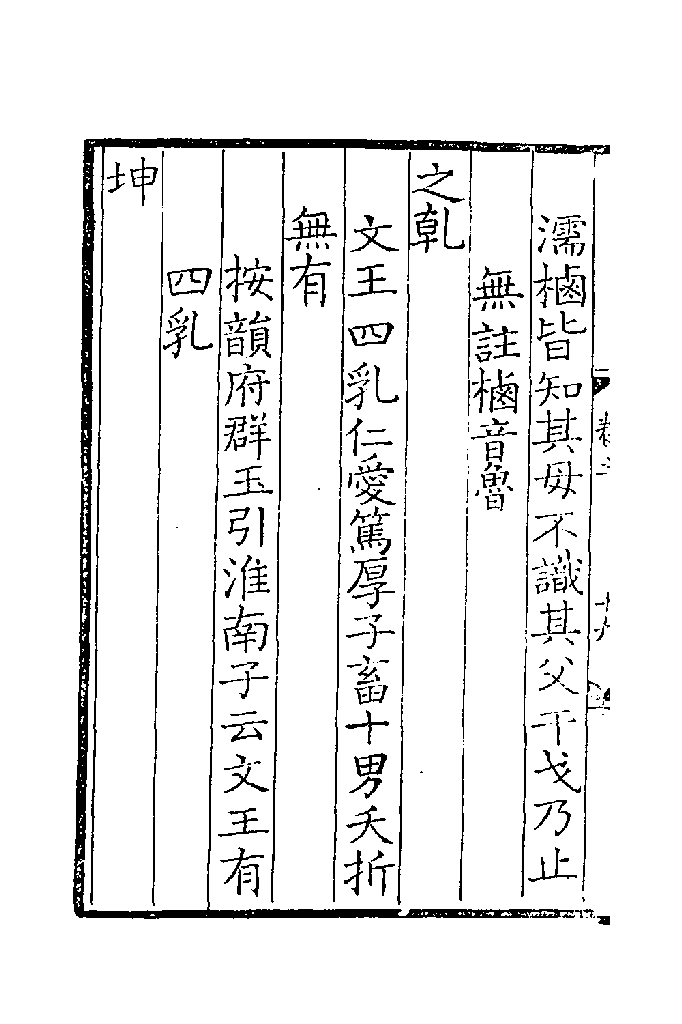 濡樐皆知其母不識其父干戈乃止
無註樐音魯
之乹
文王四乳仁愛篤厚子畜十男夭折
無有
按韻府群玉引淮南子云文王有
四乳
坤